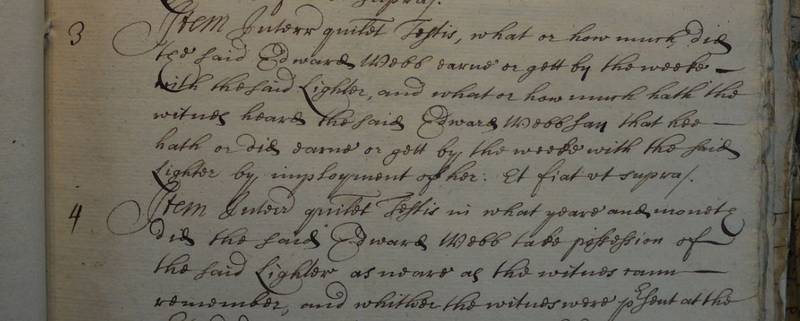 supra/.
3 Item Interr quilet Testis, what or how much did
the said Edward Webb earne or gett by the weeke
with the said Lighter, and what or how much hath the
witnes heard the said Edward Webb say that hee
hath or did earne or gett by the weeke with the said
Lighter by imployment of her. Et fiat vt supra/.
4 Item Interr quilet Testis in what yeare and moneth
did the said Edward Webb take possession of
the said Lighter as neare as the witnes cann
remember, and whither the witnes were p̄sent at the